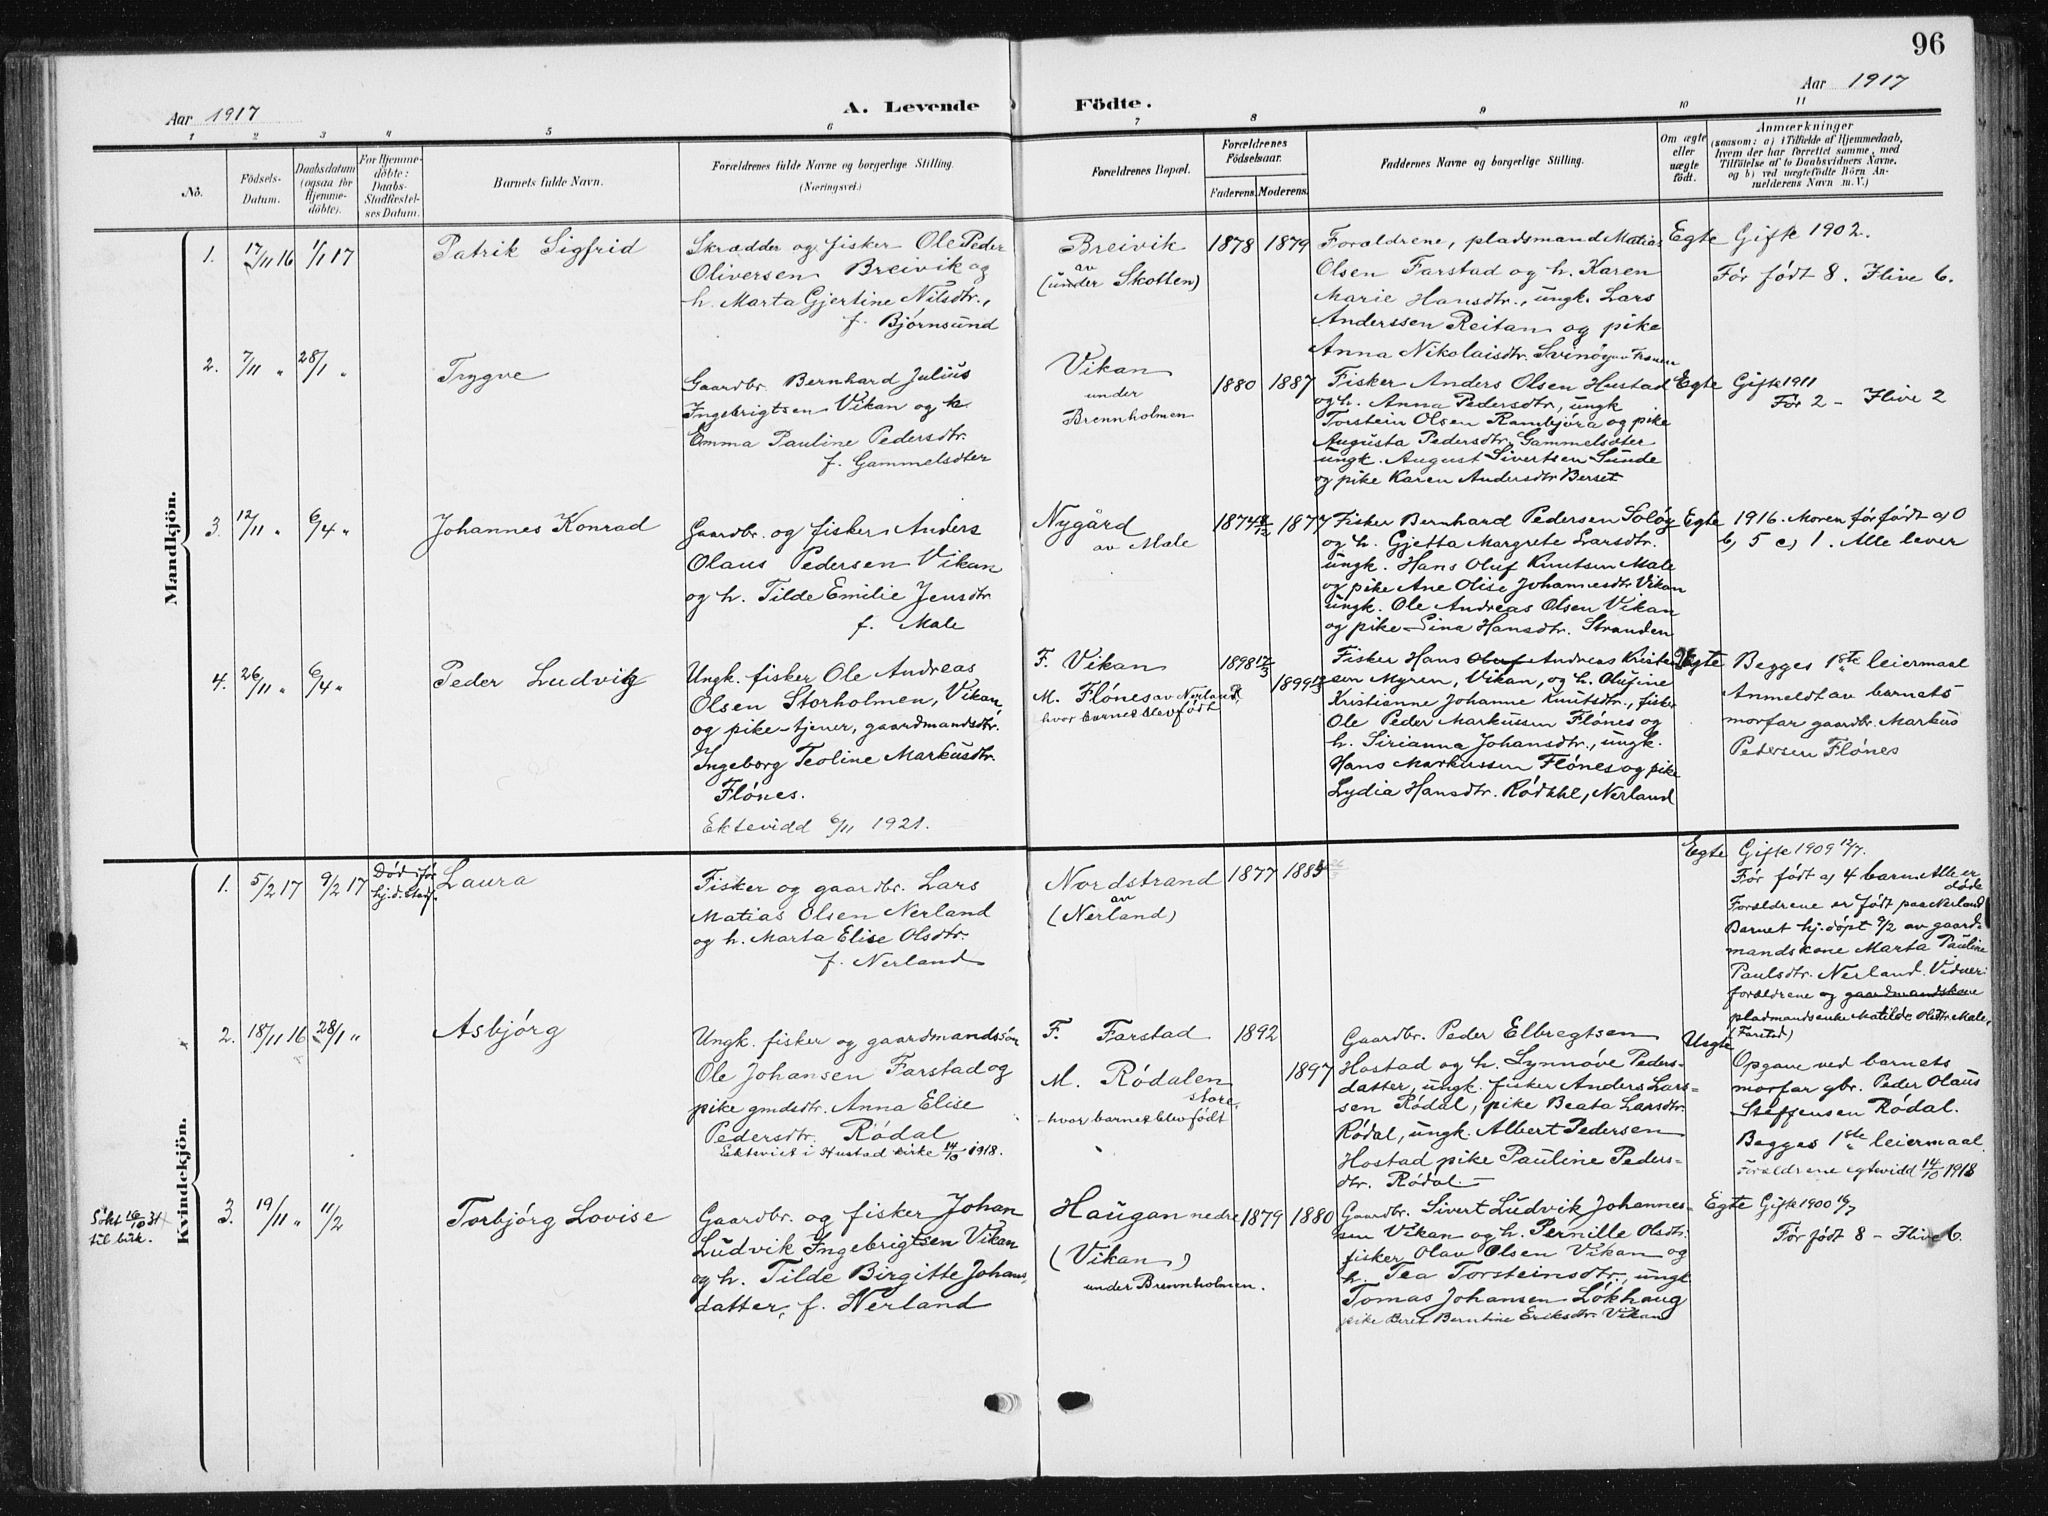 96
Aar 1917
A. Levende Födte.
Aar 1917
1 2 3 4 5 6 7 8 9 10 11
No.
Födsels-
Datum.
Daabsdatum
(ogsaa for
Hjemme-
döbte).
For Hjemme-
döbte:
Daabs-
Stadfæstel-
ses Datum.
Barnets fulde Navn.
Forældrenes fulde Navne og borgerlige Stilling.
(Næringsvei.)
Forældrenes Bopæl.
Forældrenes
Födselsaar.
Faderens. Moderens.
Faddernes Navne og borgerlige Stilling.
Om ægte
eller
uægte
födt.
Anmærkninger
(saasom: a) i Tilfælde af Hjemmedaab,
hvem der har forrettet samme, med
Tilföielse af to Daabsvidners Navne.
og b) ved uægtefödte Börn An-
melderens Navn m. V.)
Mandkjön.
1. 17/11 16 1/1 17
Patrik Sigfrid
Skrædder og fisker Ole Peder
Oliversen Breivik og
h. Marta Gjertine Nilsdtr.,
f. Bjørnsund
Breivik
av
(under Skotten)
1878 1879
Forældrene, pladsmand Matias
Olsen Farstad og h. Karen
Marie Hansdtr., ungk. Lars
Anderssen Reitan og pike
Anna Nikolaisdtr. Svinøy
Egte
Gift 1902.
Før født 8. Ilive 6.
2. 7/11 " 28/1 "
Trygve
Gaardbr. Bernhard Julius
Ingebrigtsen Vikan og h.
Emma Pauline Pedersdtr.
f. Gammelsæter
Vikan
under
Brennholmen
1880 1887
Fisker Anders Olsen Hustad
og h. Anna Pedersdtr, ungk
Torstein Olsen Rambjøra og pike
Augusta Pedersdtr. Gammelsæter
ungk. August Sivertsen Sunde
og pike Karen Andersdtr Berset
Egte
Gift 1911
Før 2 - Ilive 2
3. 12/11 " 6/4 "
Johannes Konrad
Gaardbr. og fisker Anders
Olaus Pedersen Vikan
og h. Tilde Emilie Jensdtr.
f. Male
Nygård
av Male
1874 1877
Fisker Bernhard Pedersen Soløy
og h. Gjetta Margrete Larsdtr.
ungk. Hans Oluf Knutsen Male
og pike Ane Olise Johannesdtr. Vikan
ungk. Ole Andreas Olsen Vikan
og pike Lina Hansdtr. Stranden
Egte
1916. Moren før født a) 0
b) 5 c) 1. Alle lever
4. 26/11 " 6/4 "
Peder Ludvig
Ungk. fisker Ole Andreas
Olsen Storholmen, Vikan,
og pike-tjener, gaardmandsdtr.
Ingeborg Teoline Markusdtr.
Flónes.
Ektevidd 6/11 1921.
F. Vikan
M. Flónes av Nerland,
hvor barnet blev født
1898 17/3
1899
Fisker Hans Oluf Andreas Kristen
sen Myren, Vikan, og h. Olufine
Kristianne Johanne Knutsdtr., fisker
Ole Peder Markussen Flónes og
h. Sirianna Johansdtr., ungk.
Hans Markussen Flónes og pike
Lydia Hansdtr. Rødahl, Nerland
Uegte
Begges 1ste leiermaal
Anmeldt av barnets
morfar gaardbr. Markus
Pedersen Flónes
Kvindekjön.
1. 5/2 17 9/2 17
Død før
hj.d. stadf.
Laura
Fisker og gaardbr. Lars
Matias Olsen Nerland
og h. Marta Elise Olsdtr.
f. Nerland
Nordstrand
av
(Nerland)
1877 1885
Egte
Gift 1909 12/7.
Før født a) 4 barn. Alle er
døde
Forældrene er født paa Nerland
Barnet hj.døpt 9/2 av gaard-
mandskone Marta Pauline
Paulsdtr. Nerland. Vidner:
forældrene og gaardmandskone
pladmandsenke Matilde Olsdtr. Male,
(Farstad)
2. 18/11 16 28/1 "
Asbjórg
Ungk. fisker og gaardmandssøn
Ole Johansen Farstad og
pike gmdsdtr. Anna Elise
Pedersdtr. Ródal
Ekteviet i Hustad kirke 14/10 1918.
F. Farstad
M. Ródalen
store,
hvor barnet blev født
1892
1897
Gaardbr. Peder Elbregtsen
Hostad og h. Synnóve Peders-
datter, ungk. fisker Anders Lars-
sen Ródal, pike Beata Larsdtr.
Ródal, ungk. Albert Pedersen
Hostad pike Pauline Peders-
dtr. Ródal.
Uegte
Opgave ved barnets
morfar gbr. Peder Olaus
Steffensen Ródal.
Begges 1ste leiermaal.
Forældrene egtevidd 14/10 1918
Søkt 16/10 31
til bisk.
3. 19/11 " 11/2
Torbjórg Lovise
Gaardbr. og fisker Johan
Ludvik Ingebrigtsen Vikan
og h. Tilde Birgitte Johans-
datter, f. Nerland
Haugan nedre
(Vikan)
under Brennholmen.
1879 1880
Gaardbr. Sivert Ludvik Johannes-
sen Vikan og h. Pernille Olsdtr.
fisker Olav Olsen Vikan og
h. Tea Torsteinsdtr., ungk.
Tomas Johansen Lókhaug
pike Beret Berntine Eriksdtr. Vikan
Egte
Gift 1900
Før født 8 - Ilive 6.